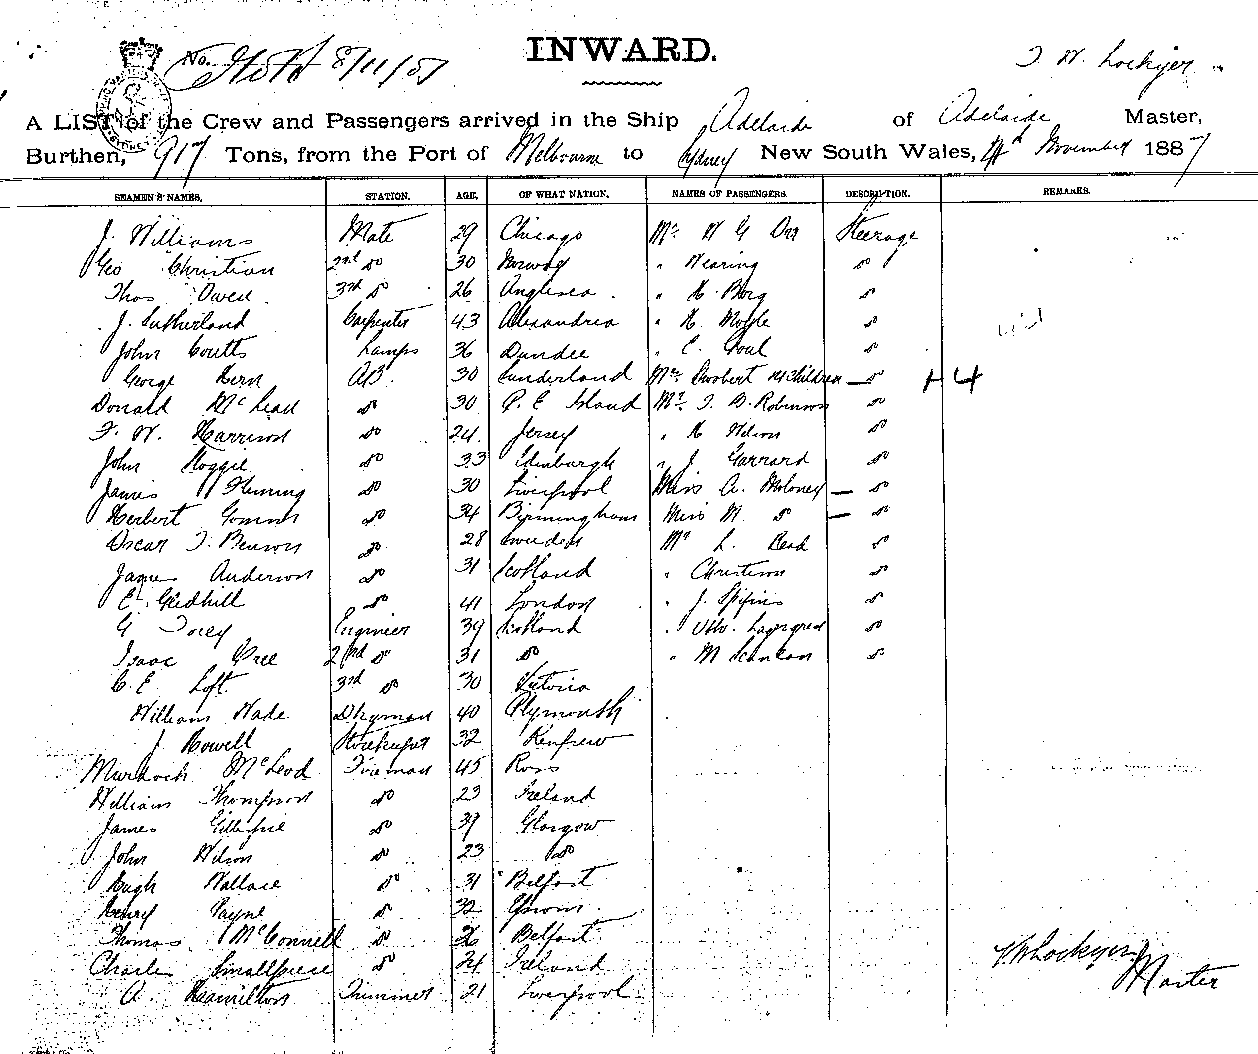 INWARD.
No. 8/11/87
T W Lockyer
A LIST of the Crew and Passengers arrived in the Ship Adelaide of Adelaide Master,
Burthen, 917 Tons, from the Port of Melbourne to Sydney New South Wales, November 1887
SEAMEN'S NAMES. STATION. AGE. OF WHAT NATION. NAMES OF PASSENGERS. DESCRIPTION. REMARKS.
J. Williams Mate 29 Chicago Mr W G Orr Steerage
Geo Christian 2nd do 30 Norway " Wearing do
Thos Owen 3rd do 26 Anglesea " H. Borg do
J. Sutherland Carpenter 43 Alexandria " H. Moyle do
John Coutts Lamps 36 Dundee " E. Poul do
George Hern AB. 30 Sunderland Mrs & 4 Children do + 4
Donald McLean do 30 P. E Island Mr. T. D. Robinson do
F. W. Harrison do 24 Jersey " H Wilson do
John Hoggie do 33 Edinburgh " J Garrard do
James Fleming do 30 Liverpool Miss A. Moloney do
Herbert do 34 Birmingham Miss M. do do
Oscar T. Benson do 28 Sweden Mr L. Read do
James Anderson do 31 Scotland " Christison do
E. Gledhill do 41 London " J. do
G Torey Engineer 39 Scotland " Otto Lagergren do
Isaac Cree 2nd do 31 do " M Scanlan do
C. E. Loft 3rd do 30 Victoria
William Wade Dkyman 40 Plymouth
J. Howell Storekeeper 32 Renfrew
Murdoch McLeod Fireman 45 Ross
William Thompson do 23 Ireland
James Gillespie do 39 Glasgow
John Wilson do 23 do
Hugh Wallace do 31 Belfast
Henry Payne do 32
Thomas McConnell do 26 Belfast
Charles Smallpiece do 24 Ireland
A. Hamilton Trimmer 21 Liverpool
T W Lockyer
Master